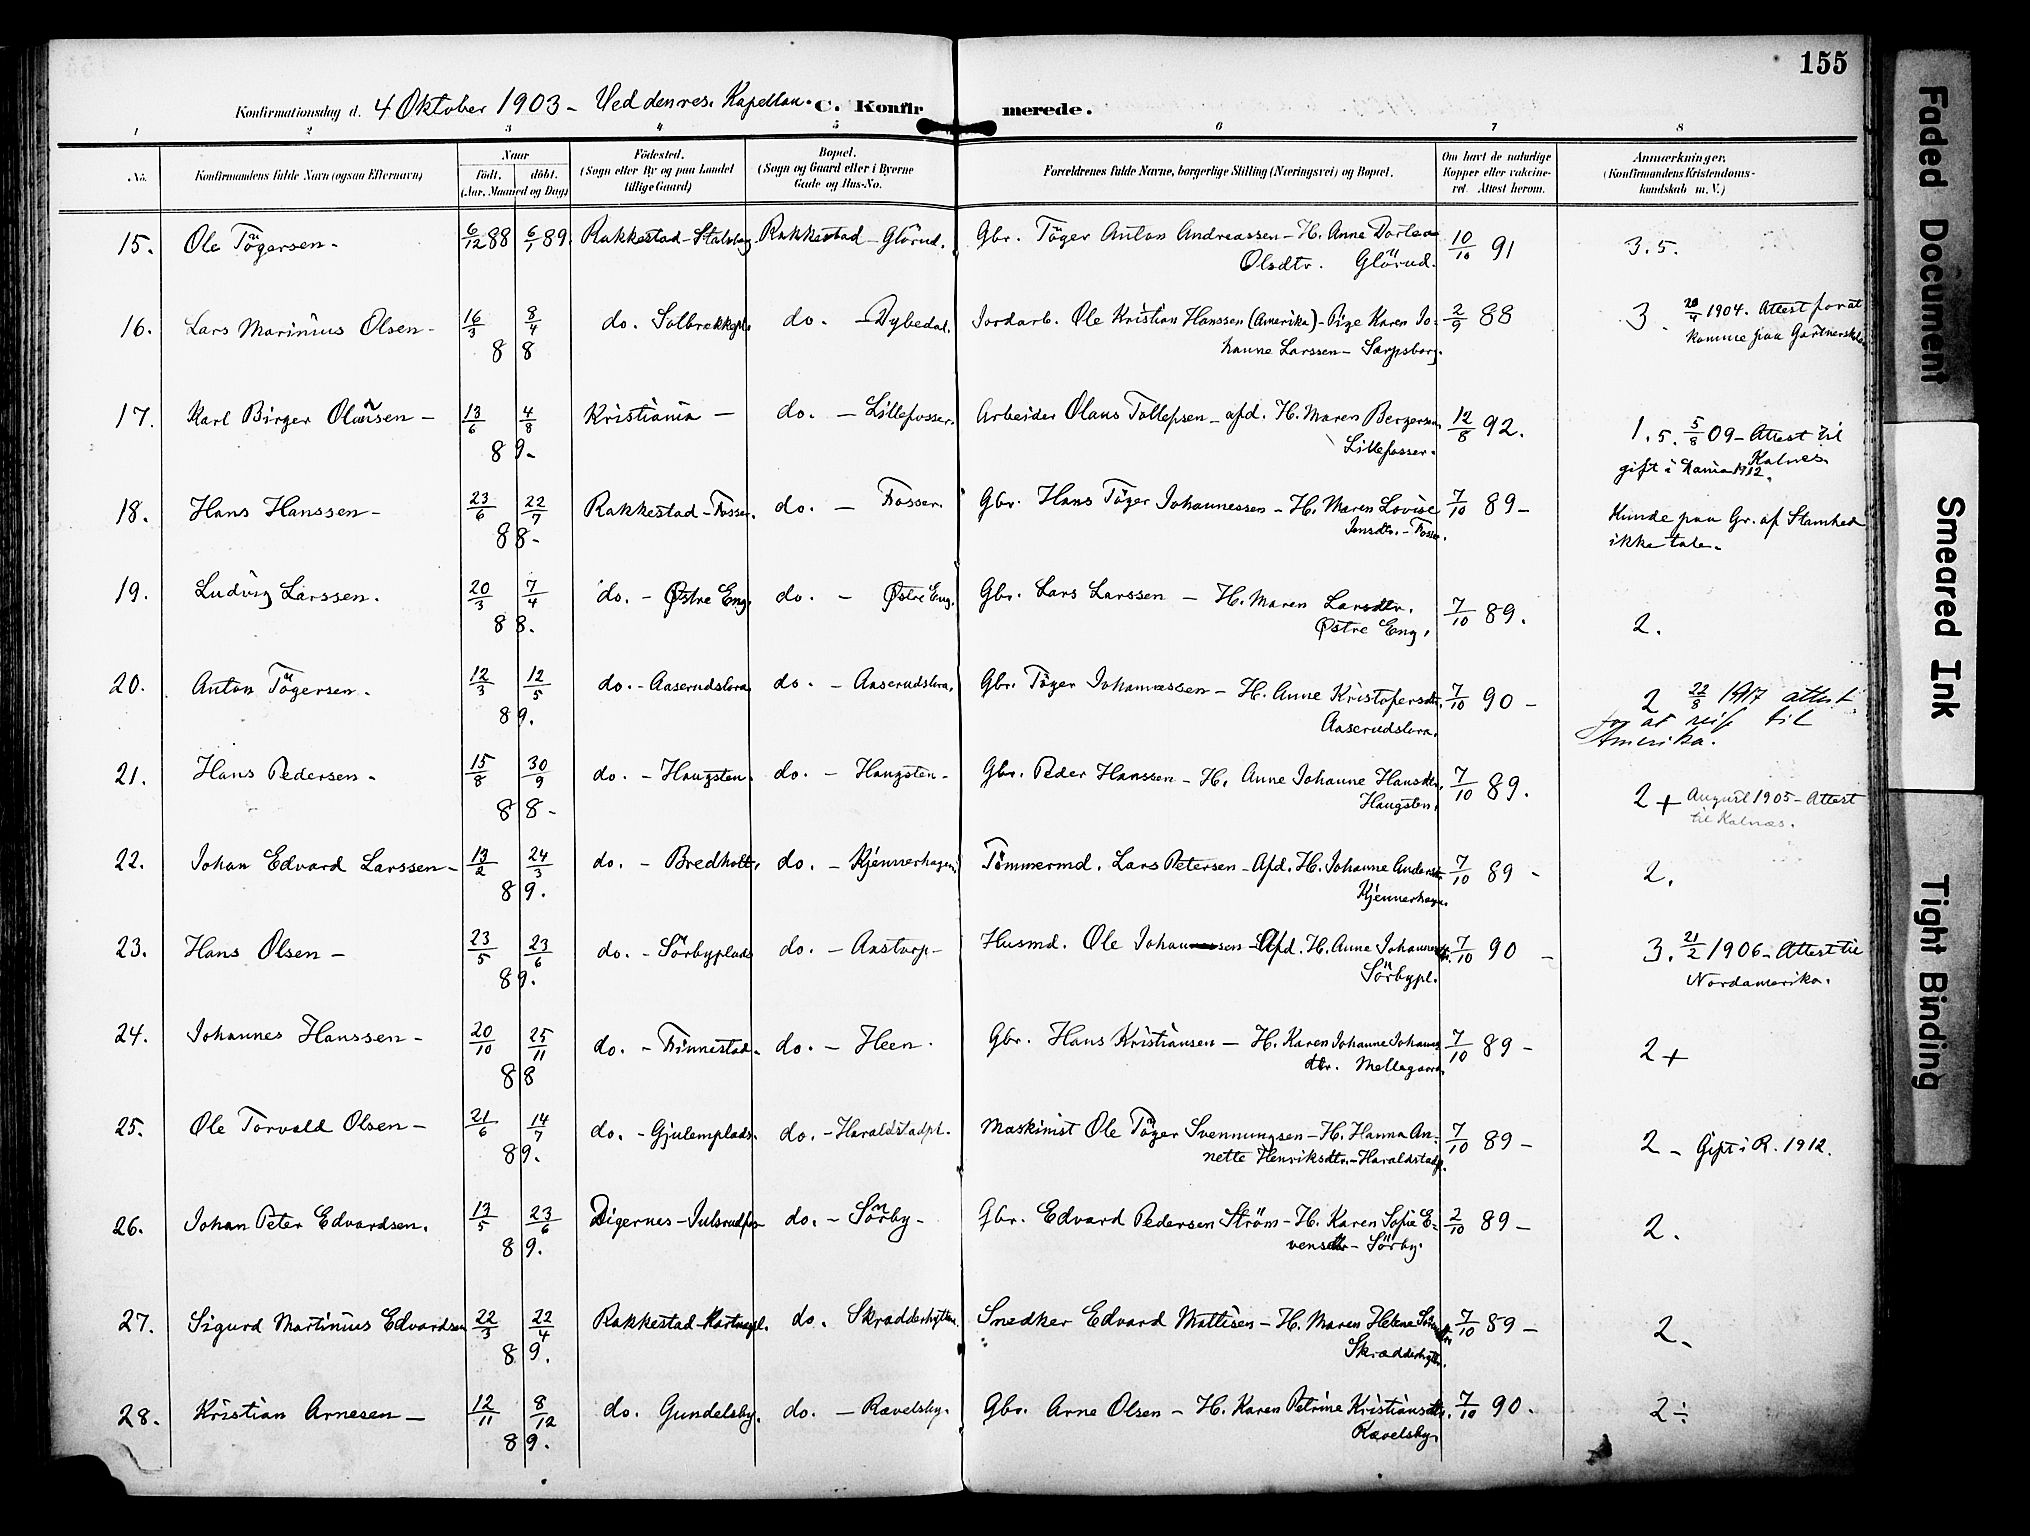 155
Konfirmationsdag d. 4 Oktober 1903 - Ved den res. Kapellan. C. Konfirmerede.
1 2 3 4 5 6 7 8
No. Konfirmandens fulde Navn (ogsaa Efternavn) Naar født, døbt. (Aar, Maaned og Dag) Fødested. (Sogn eller By og paa Landet tillige Gaard) Bopæl. (Sogn og Gaard eller i Byerne Gade og Hus-No. Forældrenes fulde Navne, borgerlige Stilling (Næringsvei) og Bopæl. Om havt de naturlige Kopper eller vaccineret. Attest herom. Anmærkninger. (Konfirmandens Kristendomskundskab m. V.)
15. Ole Tögersen - 6/12 88 6/1 89. Rakkestad - Rakkestad - Glörud. Gbr. Töger Anton Andreassen - H. Anne Dortea 10/10 91 3.5.
Olsdtr. Glörud.
16. Lars Marinius Olsen - 16/3 8/4 do. Solbrækkepl. do. - Dybedal. Jordarb. Ole Kristian Hanssen (Amerika) - Pige Karen Jo- 2/9 88 3. 1904. Attest for at
88 hanne Larssen - Sarpsborg. komme paa Gartnerskolen
17. Karl Birger Olausen - 13/6 4/8 Kristiania - do. - Lillefosser. Arbeider Olaus Tollefsen - afd. H. Maren Bergersen 12/8 92. 1.5. 5/8 09 - Attest til
89. Lillefosser. Kalnes.
gift i 1912.
18. Hans Hanssen - 23/6 22/7 Rakkestad - Fosser. do. - Fosser. Gbr. Hans Töger Johannessen - H. Maren Lovise 7/10 89 - Kunde paa Gr. af Stamhed
88. Jensdtr. - Fosser. ikke tale.
19. Ludvig Larssen. 20/3 7/4 do. - Østre Eng. do. - Østre Eng. Gbr. Lars Larssen - H. Maren Larsdtr. 7/10 89. 2.
88. Østre Eng.
20. Anton Tögersen. 12/3 12/5 do. - Aaserudslora do. - Aaserudslora. Gbr. Töger Johannessen - H. Anne Kristofersdtr. 7/10 90 - 2 22/8 1917 attest
89. Aaserudslora. for at reise til
Amerika.
21. Hans Pedersen - 15/8 30/9 do. - Haugsten. do. - Haugsten - Gbr. Peder Hanssen - H. Anne Johanne Hansdtr. 7/10 89. 2 + August 1905 - Attest
88 - Haugsten. til Kalnæs.
22. Johan Edvard Larssen - 13/2 24/3 do. - Bredholt. do. - Kjennerhagen. Tömmermd. Lars Petersen - Afd. H. Johanne Andersdtr. 7/10 89 - 2.
89. Kjennerhagen.
23. Hans Olsen - 23/5 23/6 do. - Sörbyplads do. - Aastorp - Husmd. Ole - Afd. H. Anne Johannesdtr. 7/10 90 - 3. 21/2 1906 - Attest til
89. Sörbypl. Nordamerika.
24. Johannes Hanssen - 20/10 25/11 do. - Finnestad. do. - Heen. Gbr. Hans Kristiansen - H. Karen Johanne Johannes 7/10 89 - 2 +
88 dtr. Mellegaard.
25. Ole Torvald Olsen - 21/6 14/7 do. - Gjulemplads. do. - Haraldstadpl. Maskinist Ole Töger Svennungsen - H. Hanna An- 7/10 89 - 2 - Gift i R. 1912.
89. nette Henriksdtr. - Haraldstadp.
26. Johan Peter Edvardsen. 13/5 23/6 Digernes - do. - Sörby - Gbr. Edvard Pedersen Ström - H. Karen Sofie E- 2/10 89 - 2.
89. vensdtr. - Sörby.
27. Sigurd Martinius Edvardsen 22/3 22/4 Rakkestad do. Skrædderhytten. Snedker Edvard Mattisen - H. Maren Helene 7/10 89 - 2.
89. Skrædderhytten.
28. Kristian Arnesen - 12/11 8/12 do. Gundelsby. do. - Rævelsby. Gbr. Arne Olsen - H. Karen Petrine Kristiansdtr. 7/10 90. 2 ÷
89. Rævelsby.
Faded Document
Smeared Ink
Tight Binding